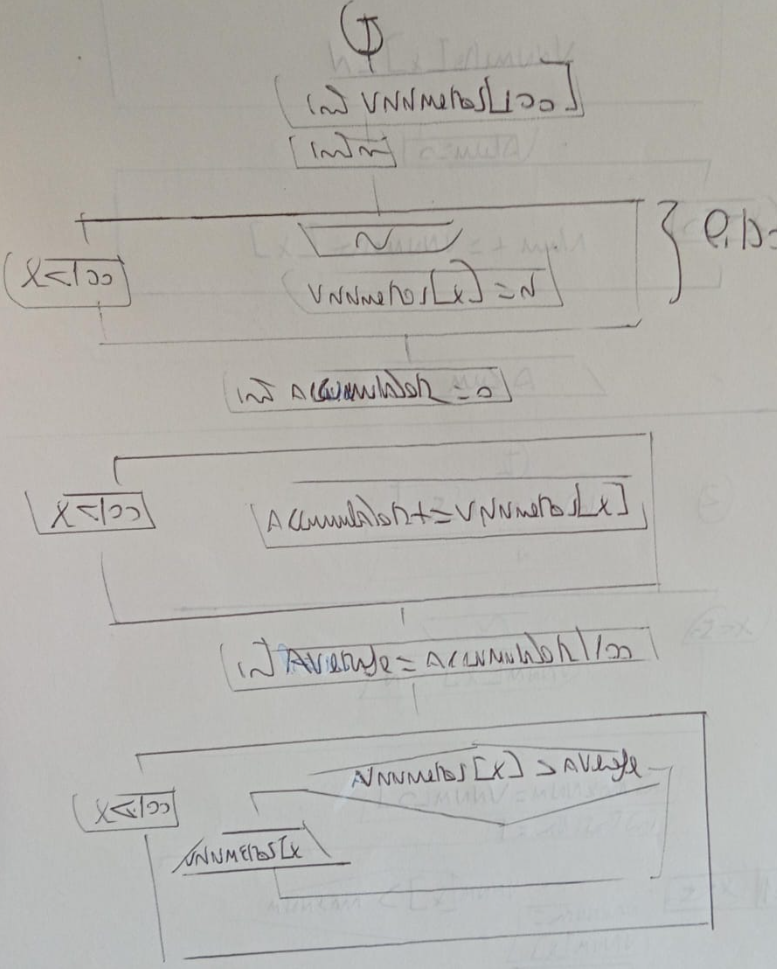 I
int VNNmeros[100]
int n
N
X<100
VNNmeros[X]=N
int Accumulator=0
X<100
Accumulator+=VNNmeros[X]
int Average=Accumulator/100
VNNmeros[X]>Average
X<100
VNNmeros[X